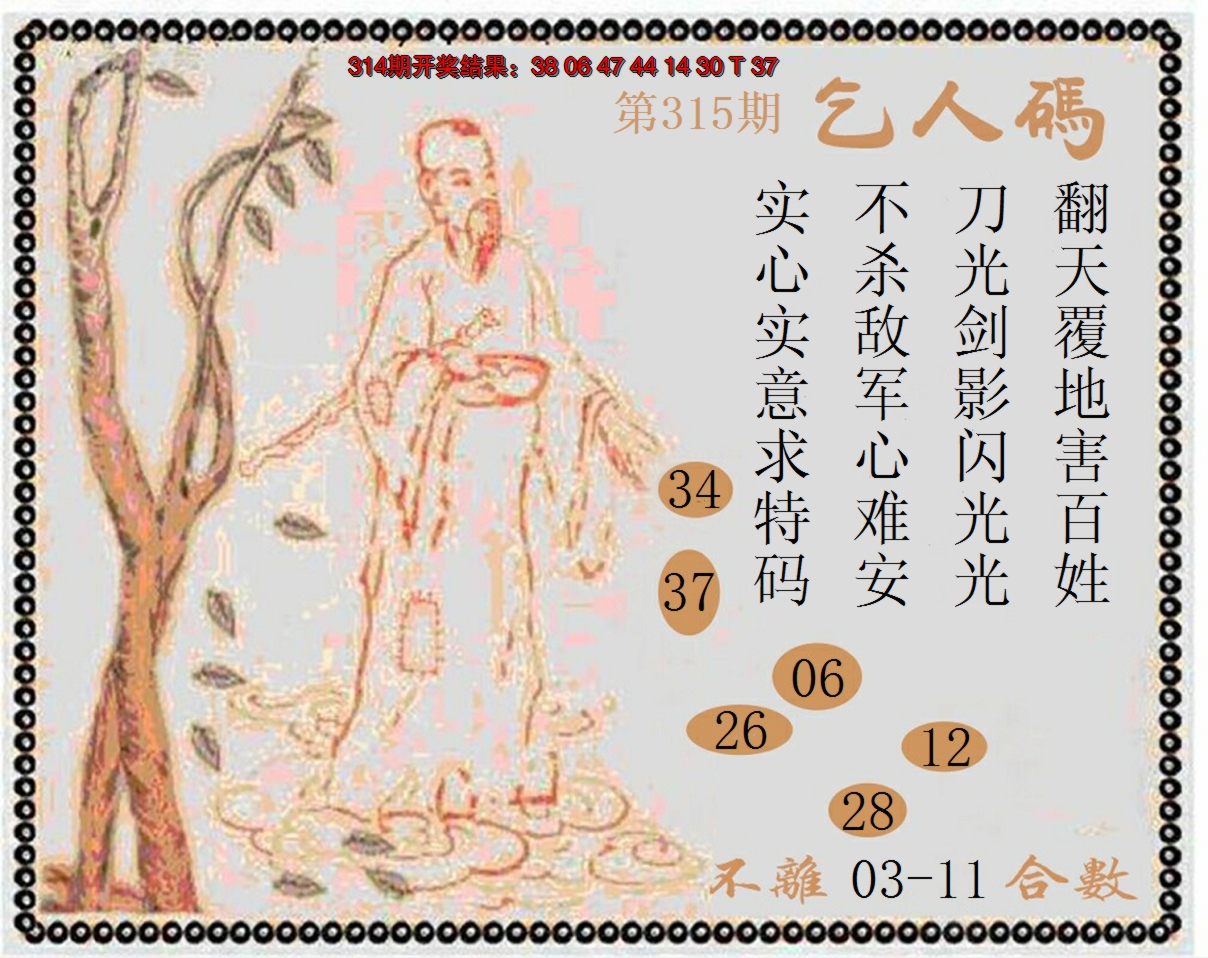 314期开奖结果：38 06 47 44 14 30 T 37
第315期 乞人碼
翻天覆地害百姓
刀光剑影闪光光
不杀敌军心难安
实心实意求特码
34
37
06
26
12
28
不離 03-11 合數